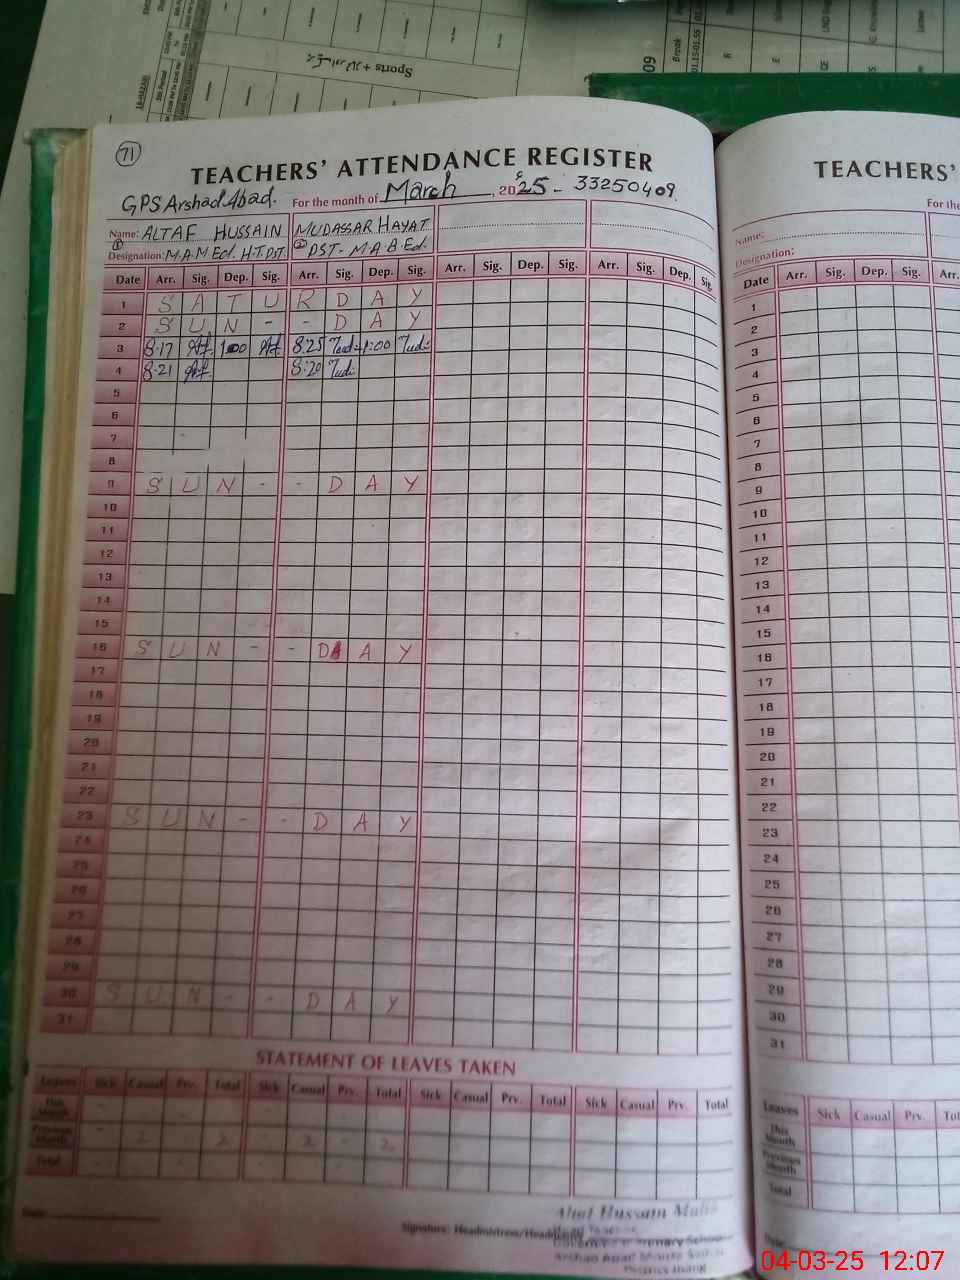 Sports +
Break
09
01.15-01.55
71
TEACHERS' ATTENDANCE REGISTER
GPS Arshad Abad. For the month of March, 2025 - 33250409
Name: ALTAF HUSSAIN MUDASSAR HAYAT
Designation: M.A M.Ed. H.T. PST PST - M.A B.Ed.
Date Arr. Sig. Dep. Sig. Arr. Sig. Dep. Sig. Arr. Sig. Dep. Sig. Arr. Sig. Dep. Sig.
1 S A T U R D A Y
2 S U N - - D A Y
3 8.17 1:00 8.25 1:00
4 8.21 8:20
5
6
7
8
9 S U N - - D A Y
10
11
12
13
14
15
16 S U N - - D A Y
17
18
19
20
21
22
23 S U N - - D A Y
24
25
26
27
28
29
30 S U N - - D A Y
31
STATEMENT OF LEAVES TAKEN
Leaves Sick Casual Prv. Total Sick Casual Prv. Total Sick Casual Prv. Total Sick Casual Prv. Total
This Month
Previous Month - 2 2 - 2 - 2
Total
Date:
Signature: Headmistress/Headmaster
Altaf Hussain
Head Teacher
Government Primary School
District Jhang
TEACHERS'
For the
Name:
Designation:
Date Arr. Sig. Dep. Sig. Arr.
1
2
3
4
5
6
7
8
9
10
11
12
13
14
15
16
17
18
19
20
21
22
23
24
25
26
27
28
29
30
31
Leaves Sick Casual Prv.
This Month
Previous Month
Total
Date:
04-03-25 12:07